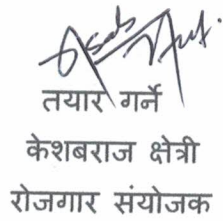 तयार गर्ने
केशबराज क्षेत्री
रोजगार संयोजक